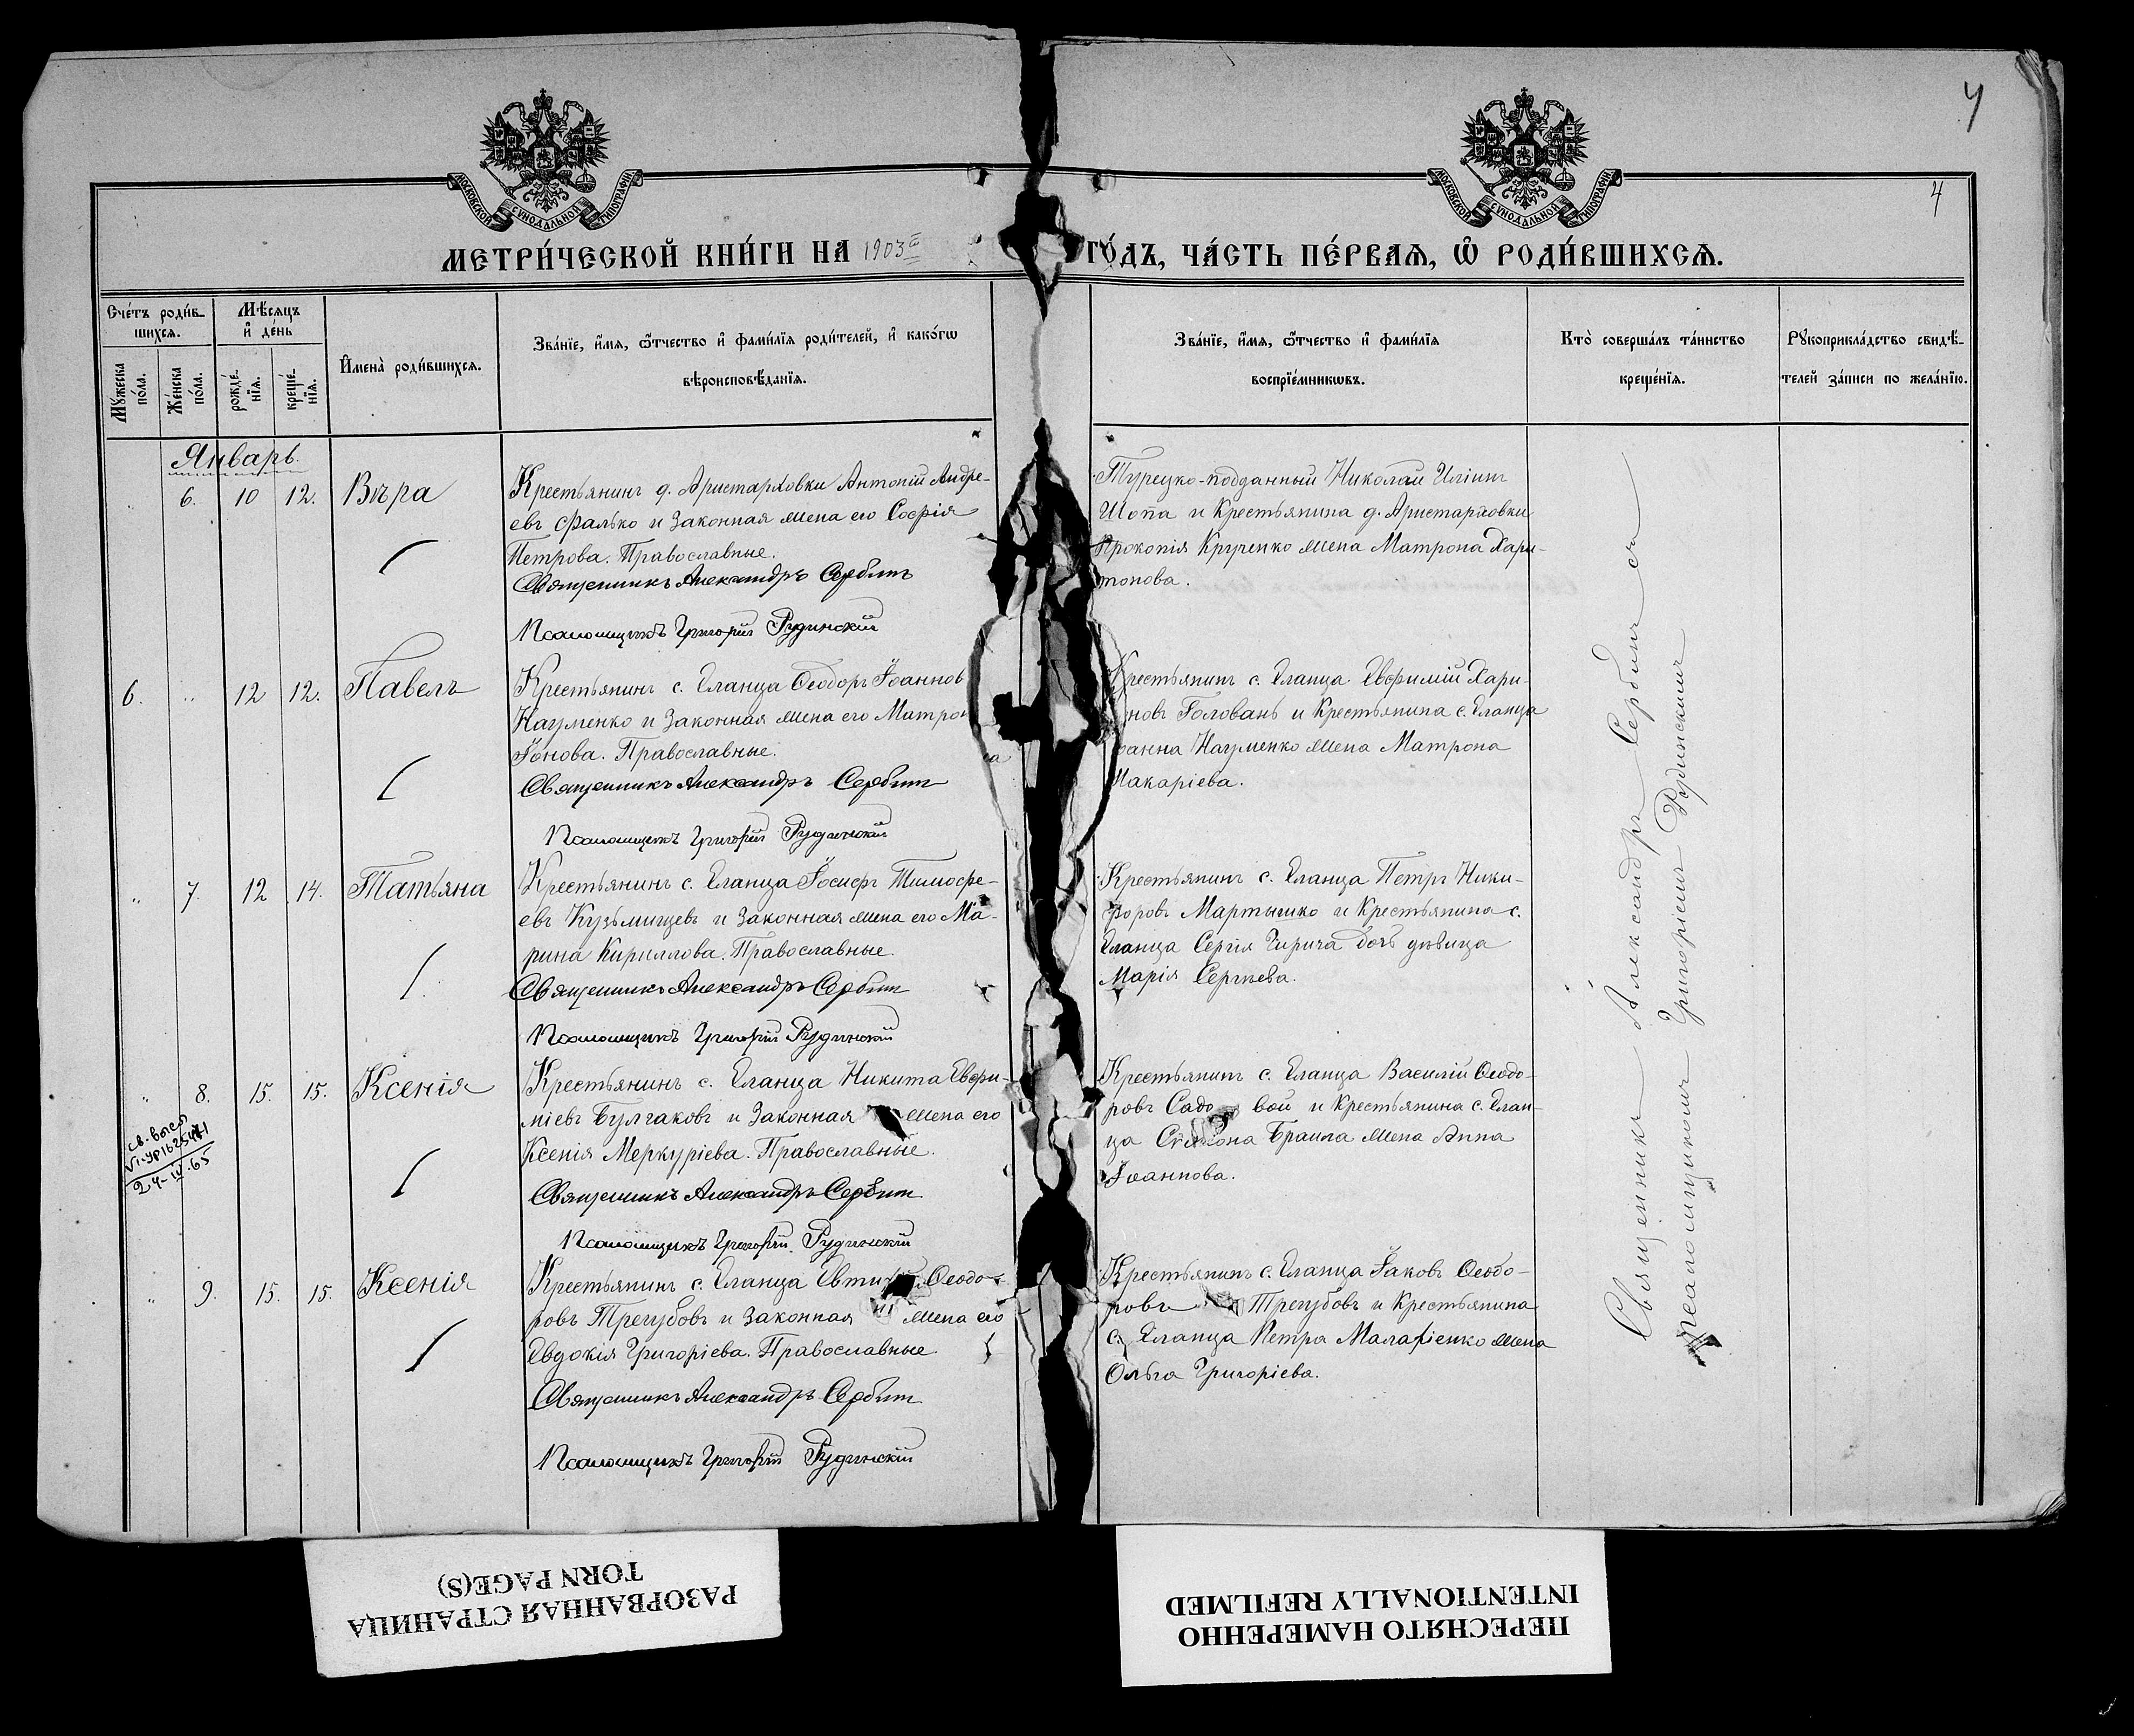 4
4
МОСКОВСКОЙ СѴНОДАЛЬНОЙ ТИПОГРАФІИ
МОСКОВСКОЙ СѴНОДАЛЬНОЙ ТИПОГРАФІИ
МЕТРИ́ЧЕСКОЙ КНИ́ГИ НА 1903й ГО́ДЪ, ЧА́СТЬ ПЕ́РВАѦ, Ѽ РОДИ́ВШИХСѦ.
Сче́тъ роди́в-
шихсѧ.
Мѣ́сѧцъ
и҆ де́нь
Мꙋ́жеска по́ла.
Же́нска по́ла.
рожде́-нїѧ.
креще́-нїѧ.
И҆мена̀ роди́вшихсѧ.
Зва́нїе, и҆́мѧ, ѻ҆́тчество и҆ фами́лїѧ роди́телей, и҆ како́гѡ
вѣроисповѣ́данїѧ.
Зва́нїе, и҆́мѧ, ѻ҆́тчество и҆ фами́лїѧ
воспрїе́мникѡвъ.
Кто̀ соверша́лъ та́инство
креще́нїѧ.
Рꙋкоприкла́дство свидѣ́-
телей за́писи по жела́нїю.
Январь.
6. 10 12. Вѣра
Крестьянинъ д. Аристарховки Антоній Андре-
евъ Фалько и законная жена его Софія
Петрова. Православные.
Священникъ Александръ Сербин
Псаломщикъ Григорій Рудинскій
Турецко-подданный Николай Иліинъ
Шопа и Крестьянина д. Аристарховки
Прокопія Крученко жена Матрона Хари-
тонова.
6. " 12 12. Павелъ
Крестьянинъ с. Еланца Ѳеодоръ Іоаннов
Науменко и законная жена его Матрон
на
Іонова. Православные.
Священникъ Александръ Сербин
Псаломщикъ Григорій Рудинскій
Крестьянинъ с. Еланца Евфимій Хари-
новъ Головань и Крестьянина с. Еланца
оанна Науменко жена Матрона
Макаріева.
" 7. 12 14. Татьяна
Крестьянинъ с. Еланца Іосифъ Тимофе-
евъ Кузьмищевъ и законная жена его Ма-
рина Кириллова. Православные.
Священникъ Александръ Сербин
Псаломщикъ Григорій Рудинскій
Крестьянинъ с. Еланца Петръ Ники-
форовъ Мартышко и Крестьянина с.
Еланца Сергія Чирича дочь дѣвица
Марія Сергѣева.
" 8. 15. 15. Ксенія
24-IV-65
Крестьянинъ с. Еланца Никита Евфи-
міевъ Булгаковъ и законная жена его
Ксенія Меркуріева. Православные.
Священникъ Александръ Сербин
Псаломщикъ Григорій Рудинскій
Крестьянинъ с. Еланца Василій Ѳеодо-
ровъ Садо вой и Крестьянина с. Елан-
ца Симеона Браила жена Анна
Іоаннова.
" 9. 15. 15. Ксенія
Крестьянинъ с. Еланца Евти Ѳеодо-
ровъ Трегубовъ и законная жена его
Евдокія Григоріева. Православные.
Священникъ Александръ Сербин
Псаломщикъ Григорій Рудинскій
Крестьянинъ с. Еланца Іаковъ Ѳеодо-
ровъ Трегубовъ и Крестьянина
с. Еланца Петра Малафіенко жена
Ольга Григоріева.
Священникъ Александръ Сербинъ съ
псаломщикомъ Григоріемъ Рудинскимъ
РАЗОРВАННАЯ СТРАНИЦА
TORN PAGE(S)
ПЕРЕСНЯТО НАМЕРЕННО
INTENTIONALLY REFILMED